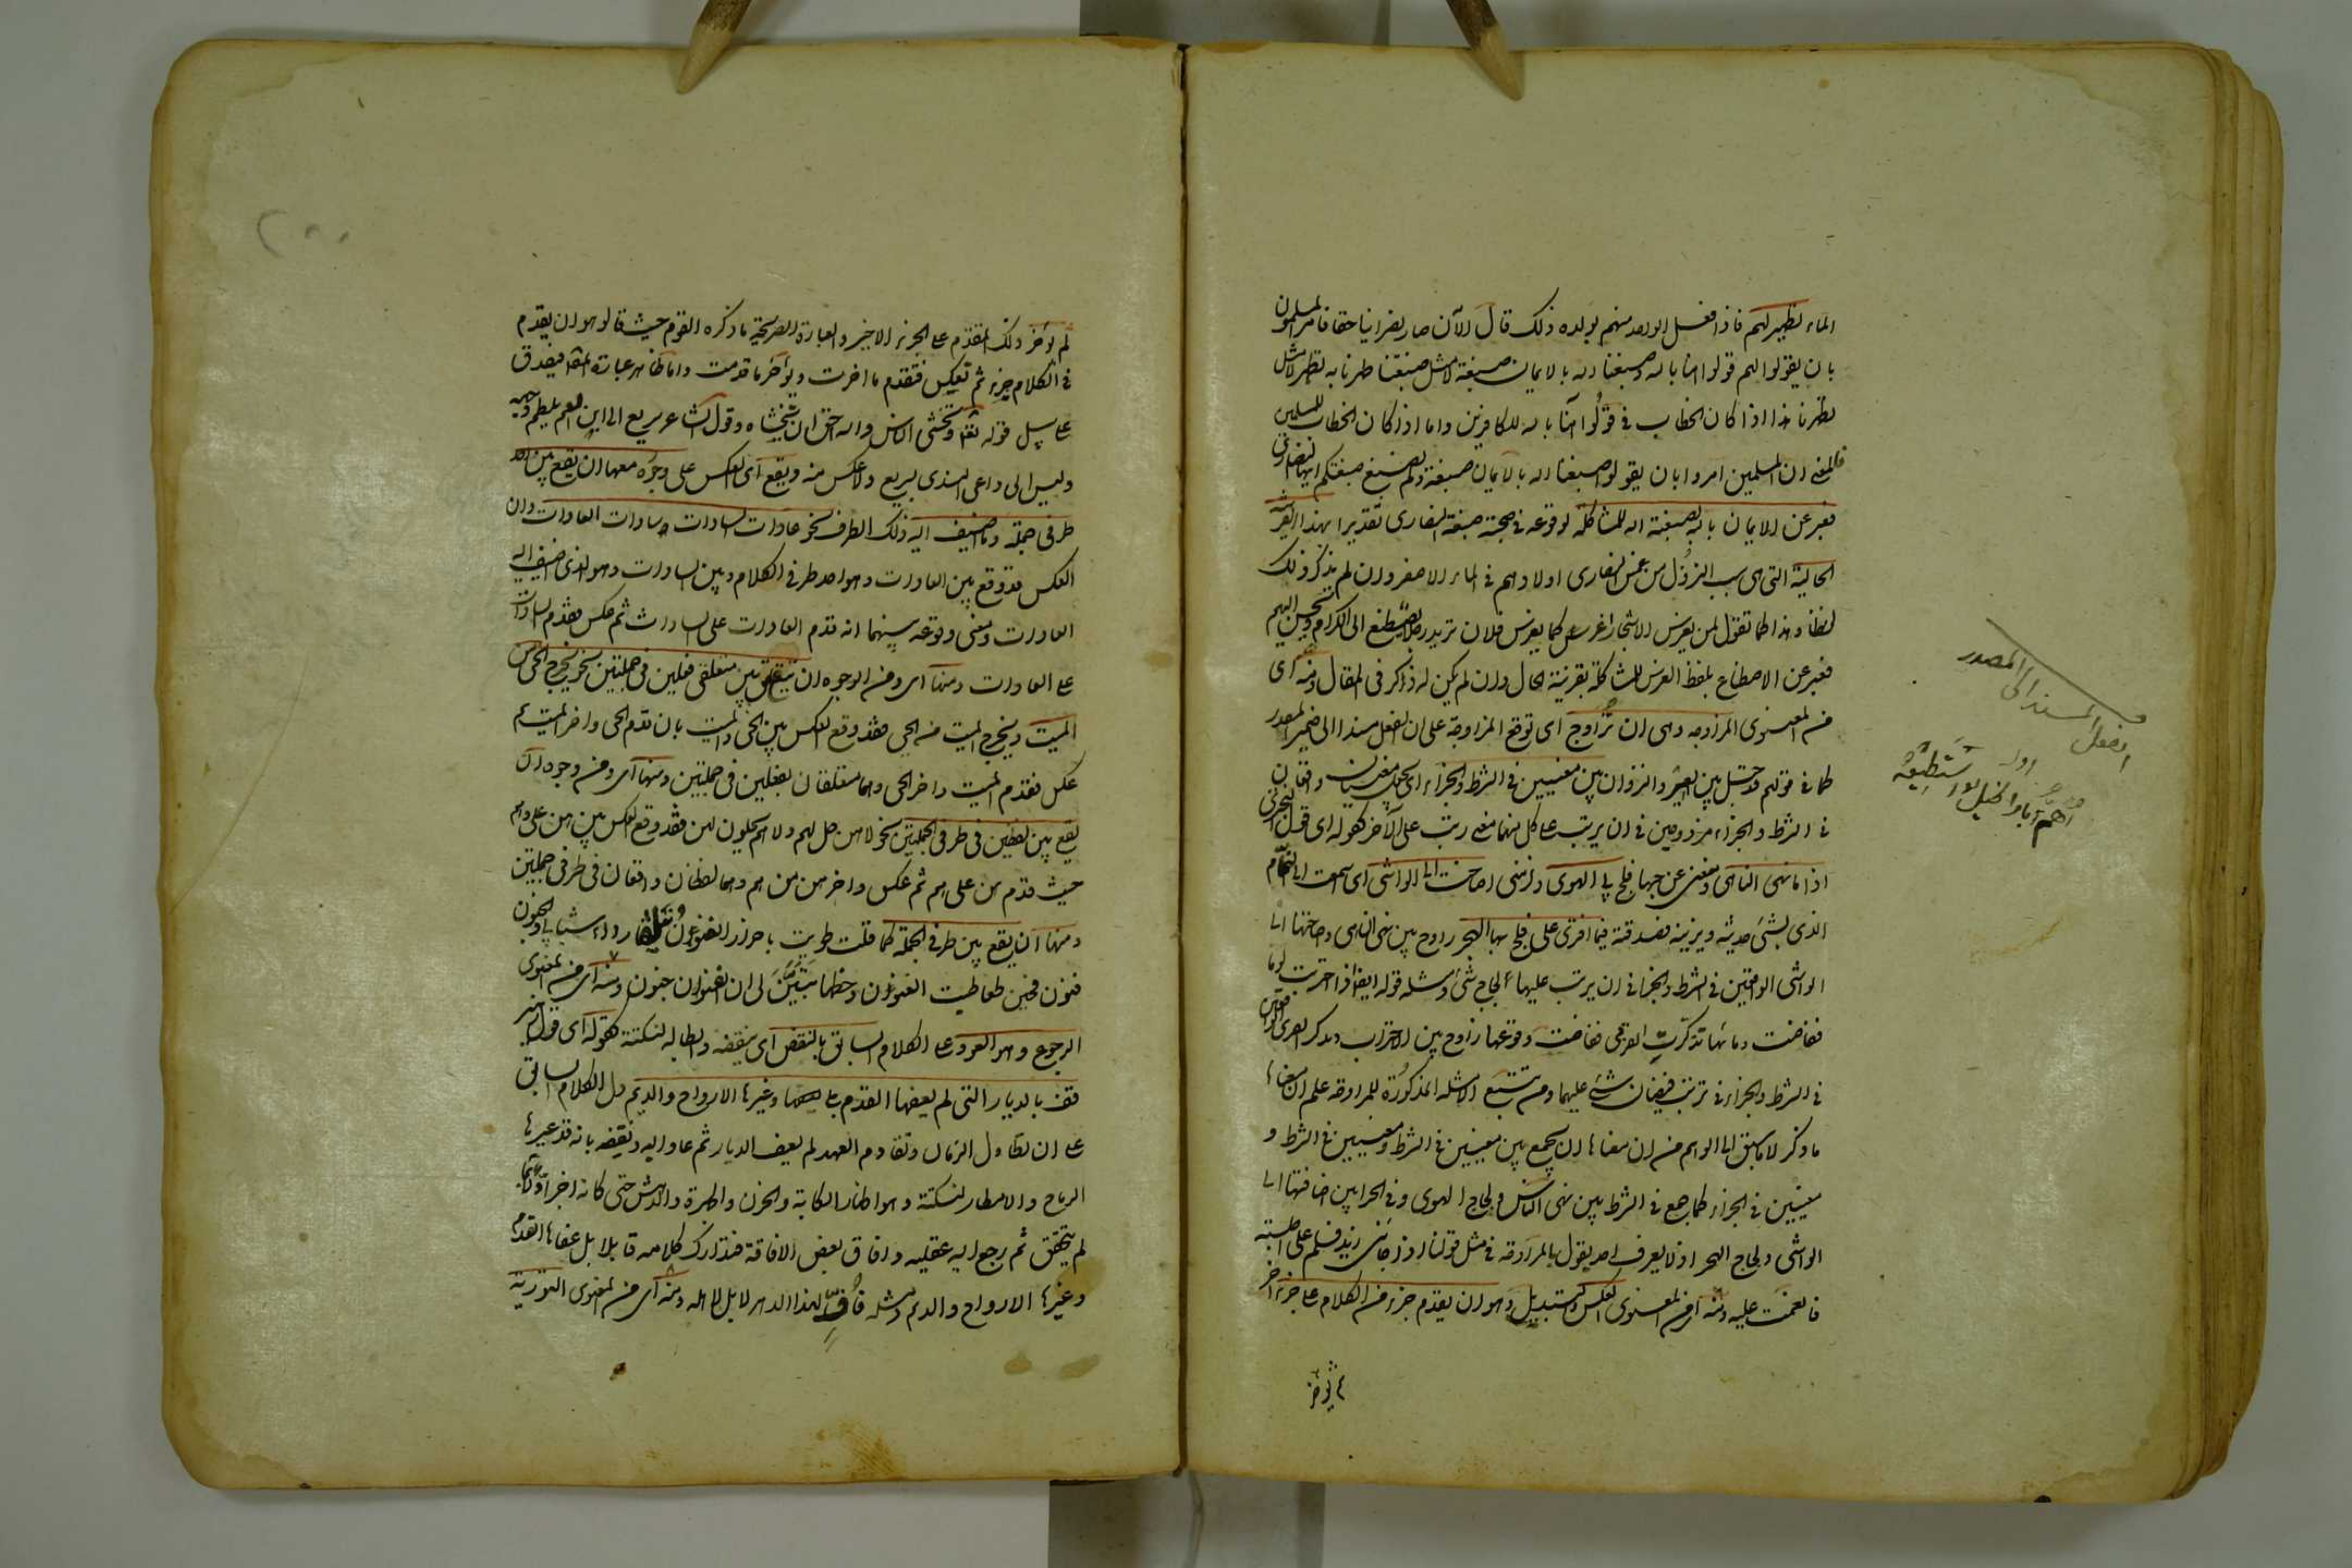 الماء تطهير لهم فاذا فعل الواحد منهم بولده ذلك قال الآن صار نصرانيا حقا فامر المسلمون
بان يقولوا لهم قولوا امنا بالله وصبغنا الله بالايمان صبغة لا مثل صبغتنا وطهرنا به تطهيرا لا مثل
تطهيرنا هذا اذا كان الخطاب فى قولوا آمنا بالله للكافرين واما اذا كان الخطاب للمسلمين
فالمعنى ان المسلمين امروا بان يقولوا صبغنا الله بالايمان صبغة ولم نصبغ صبغتكم ايها النصارى
فعبر عن الايمان بالله بصبغة الله للمشاكلة لوقوعه فى صحبة صبغة النصارى تقديرا بهذه القرينة
الحالية التى هى سبب النزول من غمس النصارى اولادهم فى الماء الاصفر وان لم يذكر ذلك
لفظا وهذا كما تقول لمن يغرس الاشجار اغرس كما يغرس فلان تريد رجلا يصطنع الى الكرام ويحسن اليهم
فعبر عن الاصطناع بلفظ الغرس للمشاكلة بقرينة الحال وان لم يكن له ذكر فى المقال ومنه اى
من المعنوى المزاوجة وهى ان تزاوج اى توقع المزاوجة على ان الفعل مسند الى ضمير المصدر
كما فى قولهم وحيل بين العير والنزوان بين معنيين فى الشرط والجزاء اى يجعل معنيان واقعان
فى الشرط والجزاء مزدوجين فى ان يرتب على كل منهما معنى رتب على الآخر كقوله اى قول البحترى
اذا ما نهى الناهى ومنعنى عن حبها فلج بى الهوى ولزمنى اصاخت الى الواشى اى سمعت الى النمام
الذى يشئ حديثه ويزينه فصدقته فيما افترى على فلج بها الهجر زاوج بين نهى الناهى واصاختها الى
الواشى الواقعين فى الشرط والجزاء فى ان يرتب عليهما لجاج شئ ومثله قوله ايضا اذا احتربت يوما
ففاضت دماؤها تذكرت القربى ففاضت دموعها زاوج بين الاحتراب وتذكر القربى الواقعين
فى الشرط والجزاء فى ترتب فيضان شئ عليهما ومن تتبع الامثلة المذكورة للمزاوجة علم ان معناها
ما ذكر لا ما سبق الى الوهم من ان معناها ان يجمع بين معنيين فى الشرط ومعنيين فى الشرط و
معنيين فى الجزاء كما جمع فى الشرط بين نهى الناس ولجاج الهوى وفى الجزاء بين اصاختها الى
الواشى ولجاج الهجر اذ لا يعرف احد يقول بالمزاوجة فى مثل قولنا اذا جاءنى زيد فسلم على اجلسته
فانعمت عليه ومنه اى من المعنوى العكس والتبديل وهو ان يقدم جزء من الكلام على جزء آخر
ثم يؤخر
الفعل المسند الى المصدر
اوله
اهم بامر الحزم لو استطيعه
ثم يؤخر ذلك المقدم على الجزء الاخير والعبارة الصريحة ما ذكره القوم حيث قالوا هو ان يقدم
فى الكلام جزء ثم تعكس فتقدم ما اخرت ويؤخر ما قدمت واما ظاهر عبارة المصنف فيصدق
على مثل قوله تعالى وتخشى الناس والله احق ان تخشاه وقول الشاعر سريع الى ابن العم يلطم وجهه
وليس الى داعى الندى بسريع ولا عكس فيه ويقع اى العكس على وجوه منها ان يقع بين احد
طرفى جملة وما اضيف اليه ذلك الطرف نحو عادات السادات سادات العادات وان
العكس قد وقع بين العادات وهو احد طرفى الكلام وبين السادات وهو الذى اضيف اليه
العادات ومعنى وقوعه بينهما انه قدم العادات على السادات ثم عكس فقدم السادات
على العادات ومنها اى ومن الوجوه ان يقع بين متعلقى فعلين فى جملتين نحو يخرج الحى من
الميت ويخرج الميت من الحى فقد وقع العكس بين الحى والميت بان قدم الحى واخر الميت ثم
عكس فقدم الميت واخر الحى وهما متعلقان بفعلين فى جملتين ومنها اى ومن وجوه ان
يقع بين لفظين فى طرفى الجملتين نحو لا هن حل لهم ولا هم يحلون لهن فقد وقع العكس بين هن على وهم
حيث قدم هن على هم ثم عكس واخر هن من هم وهما لفظان واقعان فى طرفى جملتين
ومنها ان يقع بين طرفى الجملة كما قلت طويت باحراز الفنون ونيلها رداء شبابى والجنون
فنون فحين تعاطيت الفنون وحظها تبين لى ان الفنون جنون ومنه اى من المعنوى
الرجوع وهو العود على الكلام السابق بالنقض اى بنقضه وابطاله لنكتة كقوله اى قول زهير
قف بالديار التى لم يعفها القدم بلى وغيرها الارواح والديم دل الكلام السابق
على ان تطاول الزمان وتقادم العهد لم يعف الديار ثم عاد اليه ونقضه بانه قد غيرها
الرياح والامطار لنكتة وهو اظهار الكآبة والحزن والحيرة والدهش حتى كانه اخبر اولا بما
لم يتحقق ثم رجع اليه عقله وافاق بعض الافاقة فتدارك كلامه قائلا بل عفاها القدم
وغيرها الارواح والديم ومثله فاف لهذا الدهر لا بل لاهله ومنه اى من المعنوى التورية